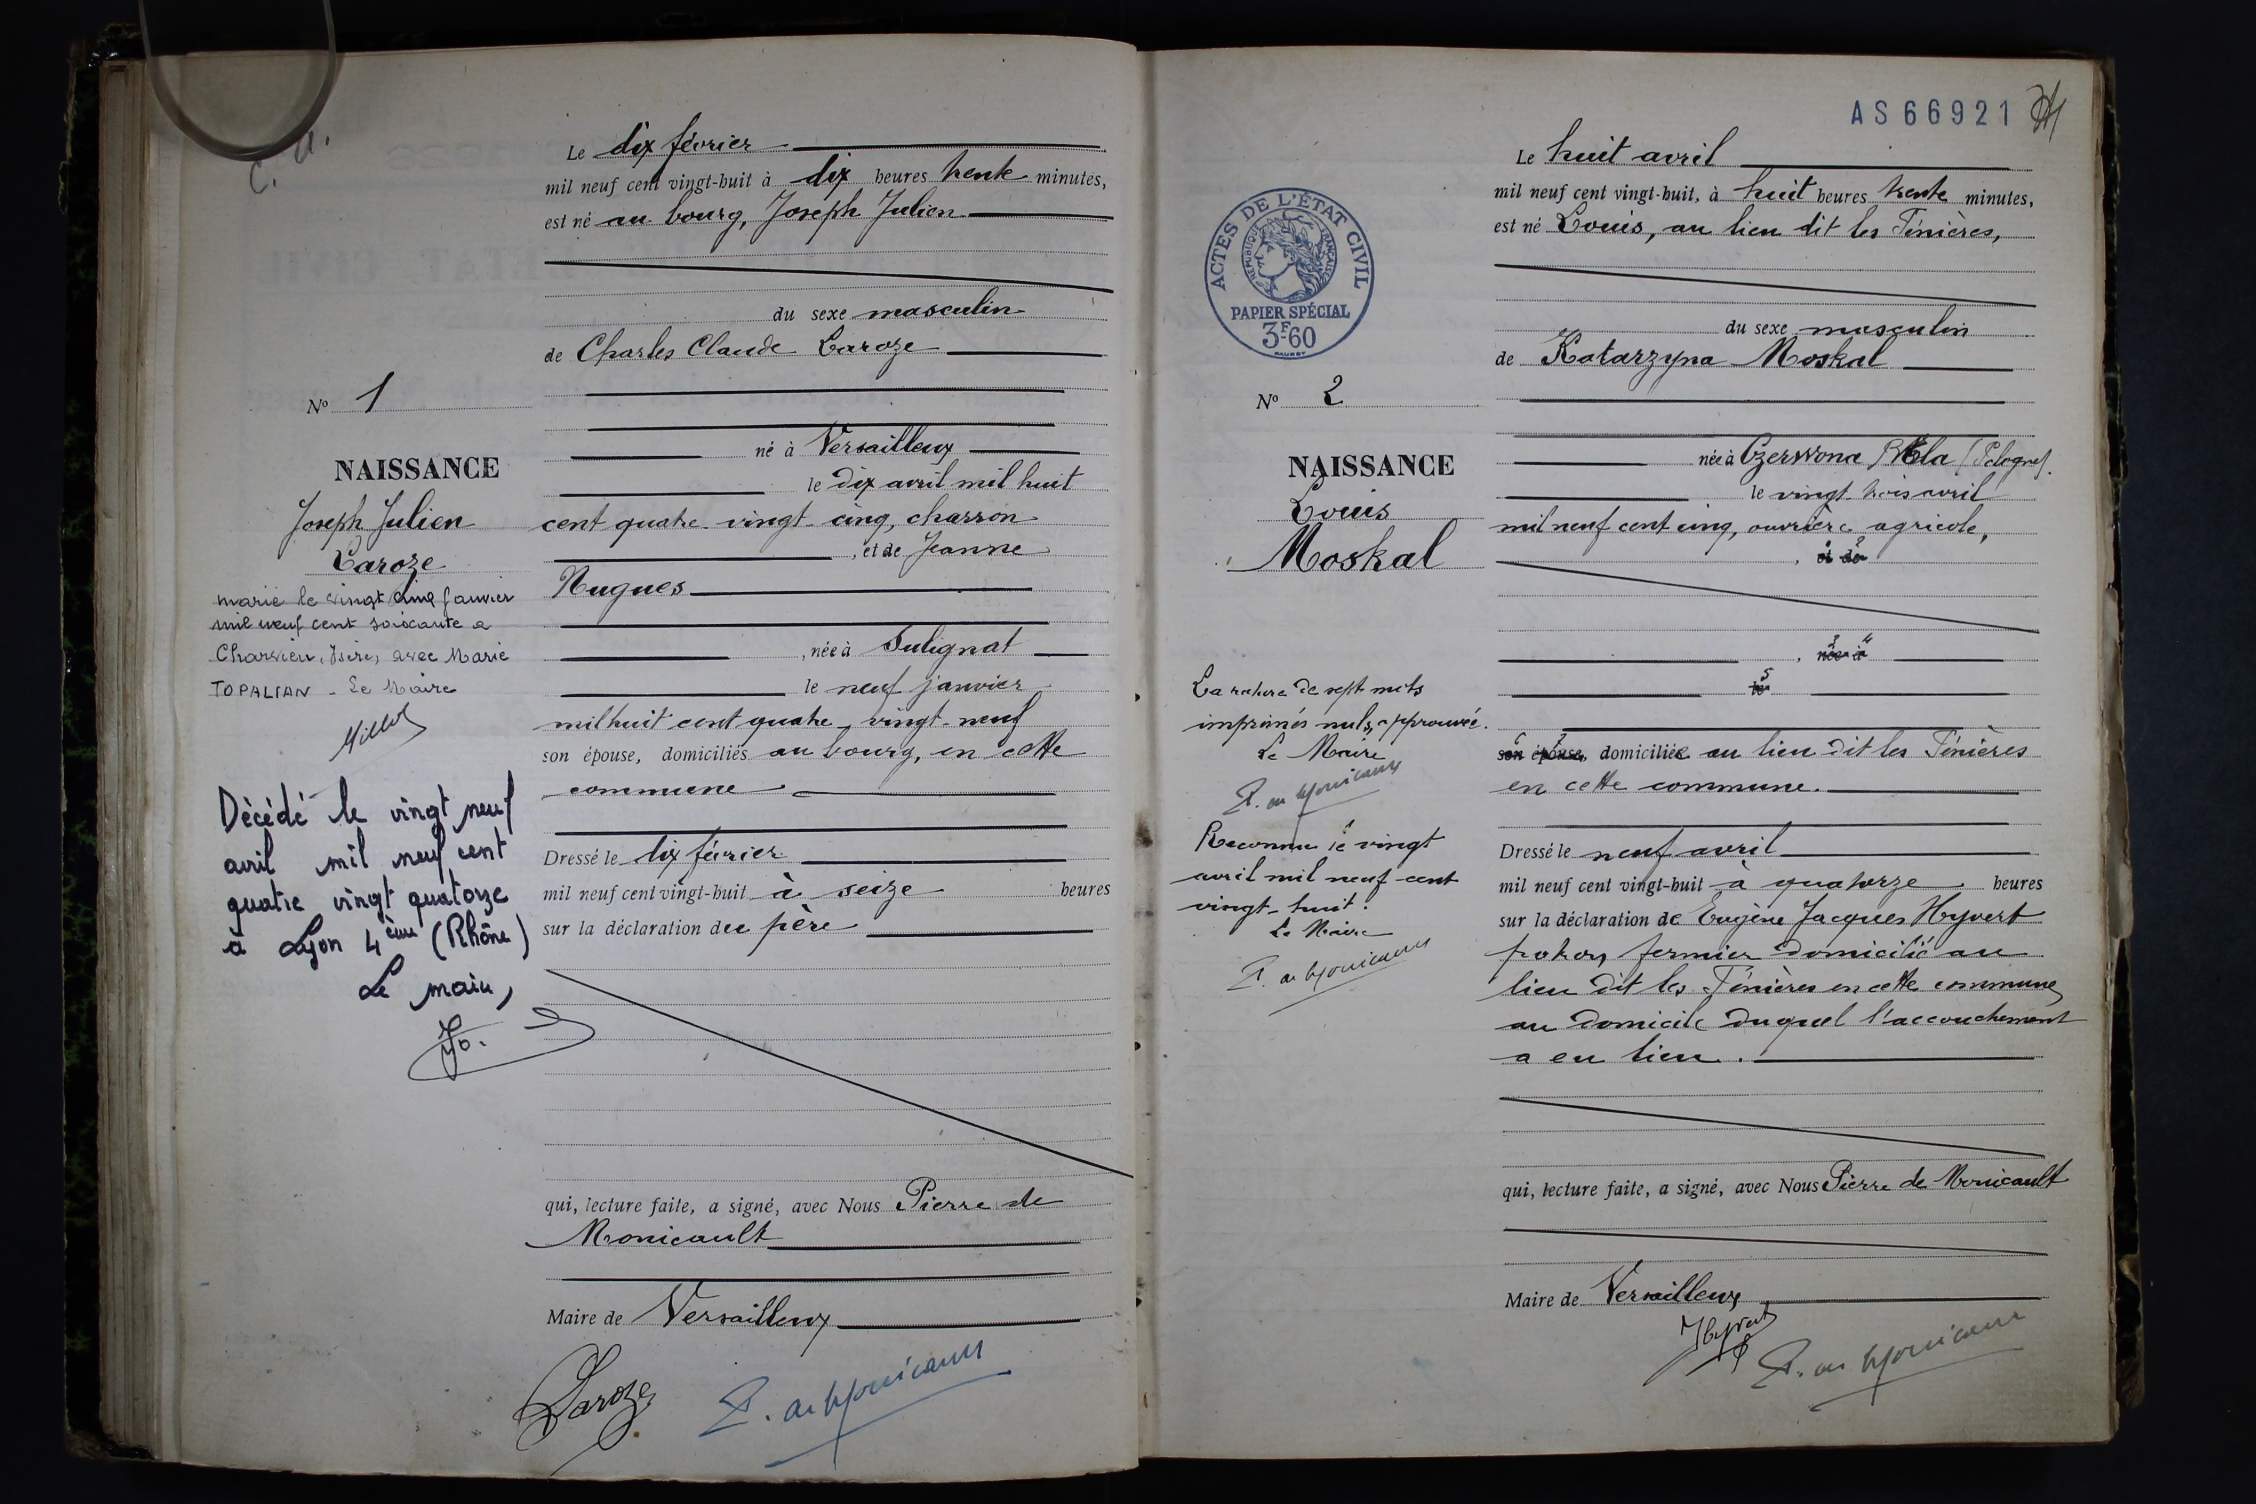 C. A.
Le dix février
mil neuf cent vingt-huit à dix heures trente minutes,
est né au bourg, Joseph Julien
du sexe masculin
de Charles Claude Laroze
né à Versailleux
le dix avril mil huit
cent quatre-vingt-cinq, charron
, et de Jeanne
Nugues
, née à Sulignat
le neuf janvier
mil huit cent quatre-vingt-neuf
son épouse, domiciliés au bourg, en cette
commune
Dressé le dix février
mil neuf cent vingt-huit à seize heures
sur la déclaration du père
qui, lecture faite, a signé, avec Nous Pierre de
Monicault
Maire de Versailleux
Laroze
P. de Monicault
No 1
NAISSANCE
Joseph Julien
Laroze
marié le vingt cinq janvier
mil neuf cent soixante à
Charvieu, Isère, avec Marie
TOPALIAN - Le Maire
Décédé le vingt neuf
avril mil neuf cent
quatre vingt quatorze
à Lyon 4ème (Rhône)
Le maire,
AS66921
ACTES DE L'ÉTAT CIVIL
RÉPUBLIQUE FRANÇAISE
PAPIER SPÉCIAL
3F60
No 2
NAISSANCE
Louis
Moskal
La rature de sept mots
imprimés nuls, approuvée.
Le Maire
P. de Monicault
Reconnu le vingt
avril mil neuf cent
vingt-huit.
Le Maire
P. de Monicault
Le huit avril
mil neuf cent vingt-huit, à huit heures trente minutes,
est né Louis, au lieu dit les Fénières,
du sexe masculin
de Katarzyna Moskal
née à Czerwona Wola (Pologne).
le vingt-trois avril
mil neuf cent cinq, ouvrière agricole,
, et de
, née à
le
son épouse, domiciliée au lieu dit les Fénières
en cette commune.
Dressé le neuf avril
mil neuf cent vingt-huit à quatorze heures
sur la déclaration de Eugène Jacques Hyvert
patron fermier domicilié au
lieu dit les Fénières en cette commune,
au domicile duquel l'accouchement
a eu lieu.
qui, lecture faite, a signé, avec Nous Pierre de Monicault
Maire de Versailleux
Hyvert
P. de Monicault